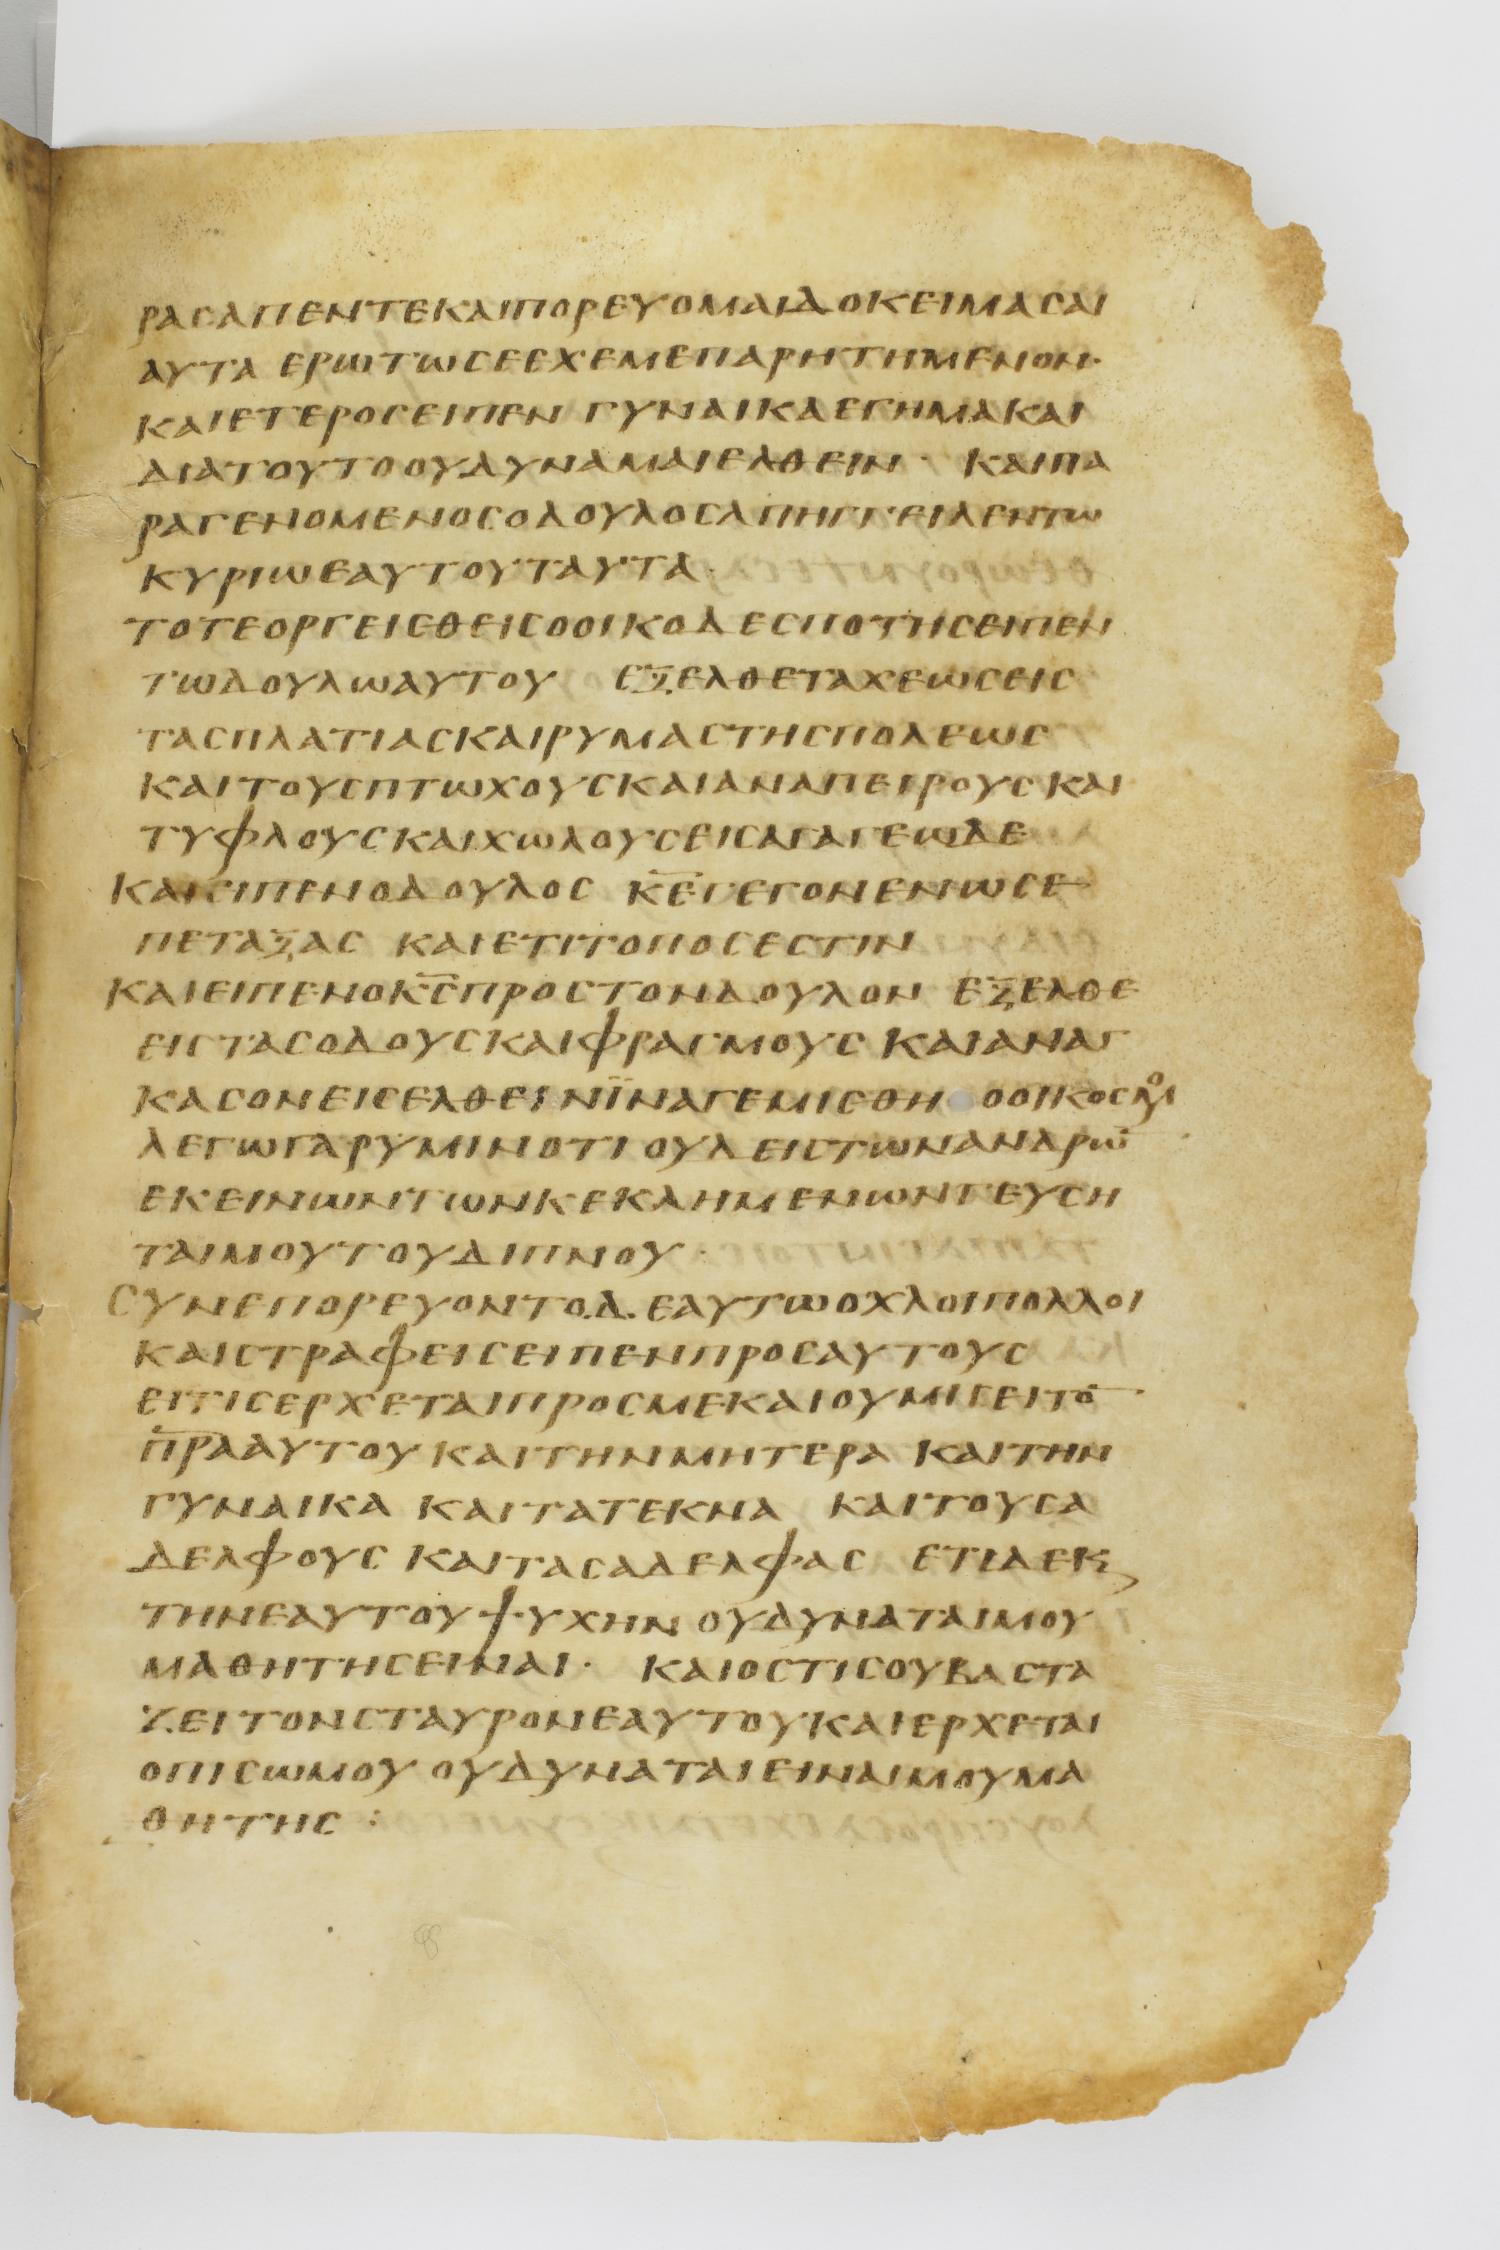 ΡΑϹΑΠΕΝΤΕΚΑΙΠΟΡΕΥΟΜΑΙΔΟΚΕΙΜΑϹΑΙ
ΑΥΤΑ ΕΡΩΤΩϹΕΕΧΕΜΕΠΑΡΗΤΗΜΕΝΟΝ·
ΚΑΙΕΤΕΡΟϹΕΙΠΕΝ ΓΥΝΑΙΚΑΕΓΗΜΑΚΑΙ
ΔΙΑΤΟΥΤΟΟΥΔΥΝΑΜΑΙΕΛΘΕΙΝ · ΚΑΙΠΑ
ΡΑΓΕΝΟΜΕΝΟϹΟΔΟΥΛΟϹΑΠΗΓΓΕΙΛΕΝΤΩ
ΚΥΡΙΩΕΑΥΤΟΥΤΑΥΤΑ ·
ΤΟΤΕΟΡΓΕΙϹΘΕΙϹΟΟΙΚΟΔΕϹΠΟΤΗϹΕΙΠΕΝ
ΤΩΔΟΥΛΩΑΥΤΟΥ ΕΞΕΛΘΕΤΑΧΕΩϹΕΙϹ
ΤΑϹΠΛΑΤΙΑϹΚΑΙΡΥΜΑϹΤΗϹΠΟΛΕΩϹ
ΚΑΙΤΟΥϹΠΤΩΧΟΥϹΚΑΙΑΝΑΠΕΙΡΟΥϹΚΑΙ
ΤΥΦΛΟΥϹΚΑΙΧΩΛΟΥϹΕΙϹΑΓΑΓΕΩΔΕ
ΚΑΙΕΙΠΕΝΟΔΟΥΛΟϹ Κ̅Ε̅ΓΕΓΟΝΕΝΩϹΕ
ΠΕΤΑΞΑϹ ΚΑΙΕΤΙΤΟΠΟϹΕϹΤΙΝ
ΚΑΙΕΙΠΕΝΟΚ̅Ϲ̅ΠΡΟϹΤΟΝΔΟΥΛΟΝ ΕΞΕΛΘΕ
ΕΙϹΤΑϹΟΔΟΥϹΚΑΙΦΡΑΓΜΟΥϹ ΚΑΙΑΝΑΓ
ΚΑϹΟΝΕΙϹΕΛΘΕΙΝΪΝΑΓΕΜΙϹΘΗ ΟΟΙΚΟϹΜΟΥ
ΛΕΓΩΓΑΡΥΜΙΝΟΤΙΟΥΔΕΙϹΤΩΝΑΝΔΡΩ̅
ΕΚΕΙΝΩΝΤΩΝΚΕΚΛΗΜΕΝΩΝΓΕΥϹΗ
ΤΑΙΜΟΥΤΟΥΔΙΠΝΟΥ ·
ϹΥΝΕΠΟΡΕΥΟΝΤΟΔΕΑΥΤΩΟΧΛΟΙΠΟΛΛΟΙ
ΚΑΙϹΤΡΑΦΕΙϹΕΙΠΕΝΠΡΟϹΑΥΤΟΥϹ
ΕΙΤΙϹΕΡΧΕΤΑΙΠΡΟϹΜΕΚΑΙΟΥΜΙϹΕΙΤΟ̅
Π̅Ρ̅Α̅ΑΥΤΟΥΚΑΙΤΗΝΜΗΤΕΡΑ ΚΑΙΤΗΝ
ΓΥΝΑΙΚΑ ΚΑΙΤΑΤΕΚΝΑ ΚΑΙΤΟΥϹΑ
ΔΕΛΦΟΥϹ ΚΑΙΤΑϹΑΔΕΛΦΑϹ ΕΤΙΔΕΚϗ
ΤΗΝΕΑΥΤΟΥΨΥΧΗΝ ΟΥΔΥΝΑΤΑΙΜΟΥ
ΜΑΘΗΤΗϹΕΙΝΑΙ · ΚΑΙΟϹΤΙϹΟΥΒΑϹΤΑ
ΖΕΙΤΟΝϹΤΑΥΡΟΝΕΑΥΤΟΥΚΑΙΕΡΧΕΤΑΙ
ΟΠΙϹΩΜΟΥ ΟΥΔΥΝΑΤΑΙΕΙΝΑΙΜΟΥΜΑ
ΘΗΤΗϹ :